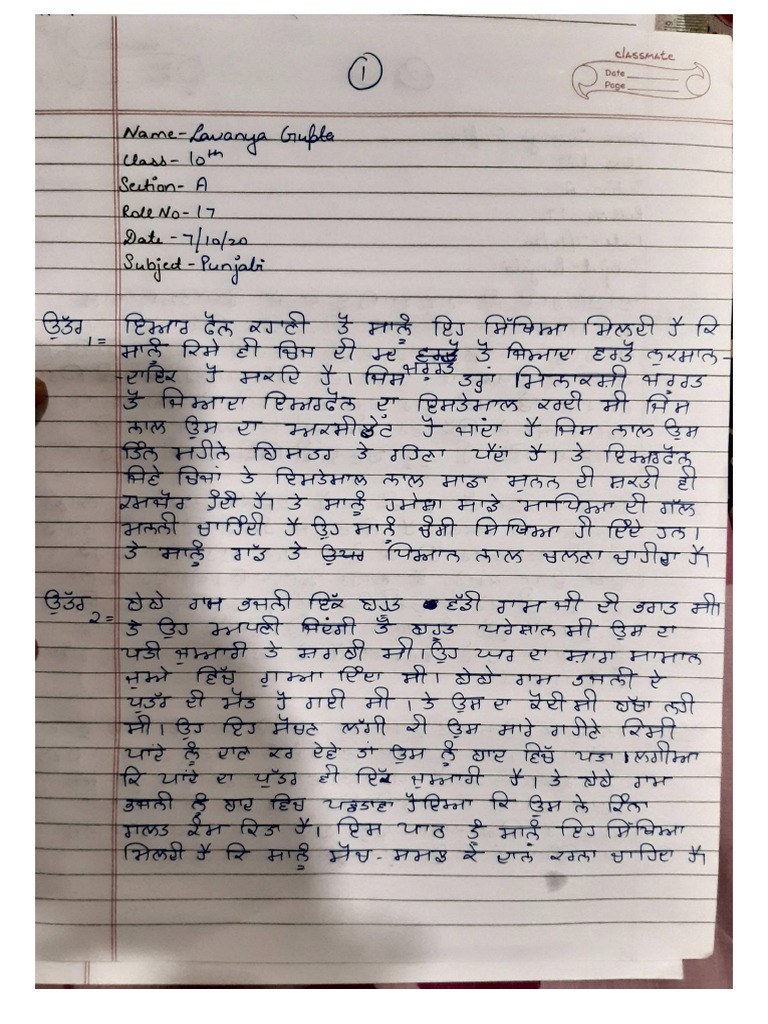 1
classmate
Date
Page
Name - Lavanya Gupta
Class - 10th
Section - A
Roll No - 17
Date - 7/10/20
Subject - Punjabi
ਉੱਤਰ 1= ਇਅਰ ਫੋਨ ਕਹਾਣੀ ਤੋਂ ਸਾਨੂੰ ਇਹ ਸਿੱਖਿਆ ਮਿਲਦੀ ਹੈ ਕਿ
ਸਾਨੂੰ ਕਿਸੇ ਵੀ ਚਿਜ ਦੀ ਜ਼ਰੂਰਤ ਤੋਂ ਜਿਆਦਾ ਵਰਤੋਂ ਨੁਕਸਾਨ-
-ਦਾਇਕ ਹੋ ਸਕਦਿ ਹੈ। ਜਿਸ ਤਰ੍ਹਾਂ ਮਿਨਾਕਸੀ ਜਰੂਰਤ
ਤੋਂ ਜਿਆਦਾ ਇਅਰਫੋਨ ਦਾ ਇਸਤੇਮਾਲ ਕਰਦੀ ਸੀ ਜਿਸ
ਨਾਲ ਉਸ ਦਾ ਅਕਸੀਡੇਂਟ ਹੋ ਜਾਂਦਾ ਹੈ ਜਿਸ ਨਾਲ ਉਸ
ਤਿੰਨ ਮਹੀਨੇ ਬਿਸਤਰ ਤੇ ਰਹਿਣਾ ਪੈਂਦਾ ਹੈ। ਤੇ ਇਅਰਫੋਨ
ਜਿਣੇ ਚਿਜਾਂ ਤੇ ਇਸਤੇਮਾਲ ਨਾਲ ਸਾਡਾ ਸੁਨਨ ਦੀ ਸਕਤੀ ਵੀ
ਕਮਜੋਰ ਹੁੰਦੀ ਹੈ। ਤੇ ਸਾਨੂੰ ਹਮੇਸ਼ਾ ਸਾਡੇ ਮਾਪਿਆ ਦੀ ਗੱਲ
ਮਨਨੀ ਚਾਹਿੰਦੀ ਹੈ ਉਹ ਸਾਨੂੰ ਚੰਗੀ ਸਿਖਿਆ ਹੀ ਦਿੰਦੇ ਹਨ।
ਤੇ ਸਾਨੂੰ ਰਾਡ ਤੇ ਉਪਰ ਧਿਆਨ ਨਾਲ ਚਲਣਾ ਚਾਹੀਦਾ ਹੈ।
ਉੱਤਰ 2= ਬੇਬੇ ਰਾਮ ਭਜਨੀ ਇੱਕ ਬਹੁਤ ਵੱਡੀ ਰਾਮ ਜੀ ਦੀ ਭਗਤ ਸੀ।
ਤੇ ਉਹ ਅਪਣੀ ਜਿੰਦਗੀ ਤੋਂ ਬਹੁਤ ਪਰੇਸ਼ਾਨ ਸੀ ਉਸ ਦਾ
ਪਤੀ ਜੁਆਰੀ ਤੇ ਸਰਾਬੀ ਸੀ। ਉਹ ਘਰ ਦਾ ਸਾਰਾ ਸਾਮਾਨ
ਜੁਏ ਵਿੱਚ ਗੁਆ ਦਿੰਦਾ ਸੀ। ਬੇਬੇ ਰਾਮ ਭਜਨੀ ਦੇ
ਪੁਤੱਰ ਦੀ ਮੌਤ ਹੋ ਗਈ ਸੀ। ਤੇ ਉਸ ਦਾ ਕੋਈ ਸੀ ਬੱਚਾ ਨਹੀ
ਸੀ। ਉਹ ਇਹ ਸੋਚਣ ਲੱਗੀ ਕੀ ਉਸ ਸਾਰੇ ਗਹੀਣੇ ਕਿਸੀ
ਪਾਂਦੇ ਨੂੰ ਦਾਣ ਕਰ ਦੇਵੇ ਤਾਂ ਉਸ ਨੂੰ ਬਾਦ ਵਿੱਚ ਪਤਾ ਲਗੀਆ
ਕਿ ਪਾਂਦੇ ਦਾ ਪੁੱਤਰ ਵੀ ਇੱਕ ਜੁਆਰੀ ਹੈ। ਤੇ ਬੇਬੇ ਰਾਮ
ਭਜਨੀ ਨੂੰ ਬਾਦ ਵਿਚ ਪਛਤਾਵਾ ਹੋਇਆ ਕਿ ਉਸ ਨੇ ਕਿੰਨਾ
ਗਲਤ ਕੰਮ ਕਿਤਾ ਹੈ। ਇਸ ਪਾਠ ਤੂੰ ਸਾਨੂੰ ਇਹ ਸਿੱਖਿਆ
ਮਿਲਦੀ ਹੈ ਕਿ ਸਾਨੂੰ ਸੋਚ-ਸਮਝ ਕੇ ਦਾਨ ਕਰਨਾ ਚਾਹਿਦਾ ਹੈ।